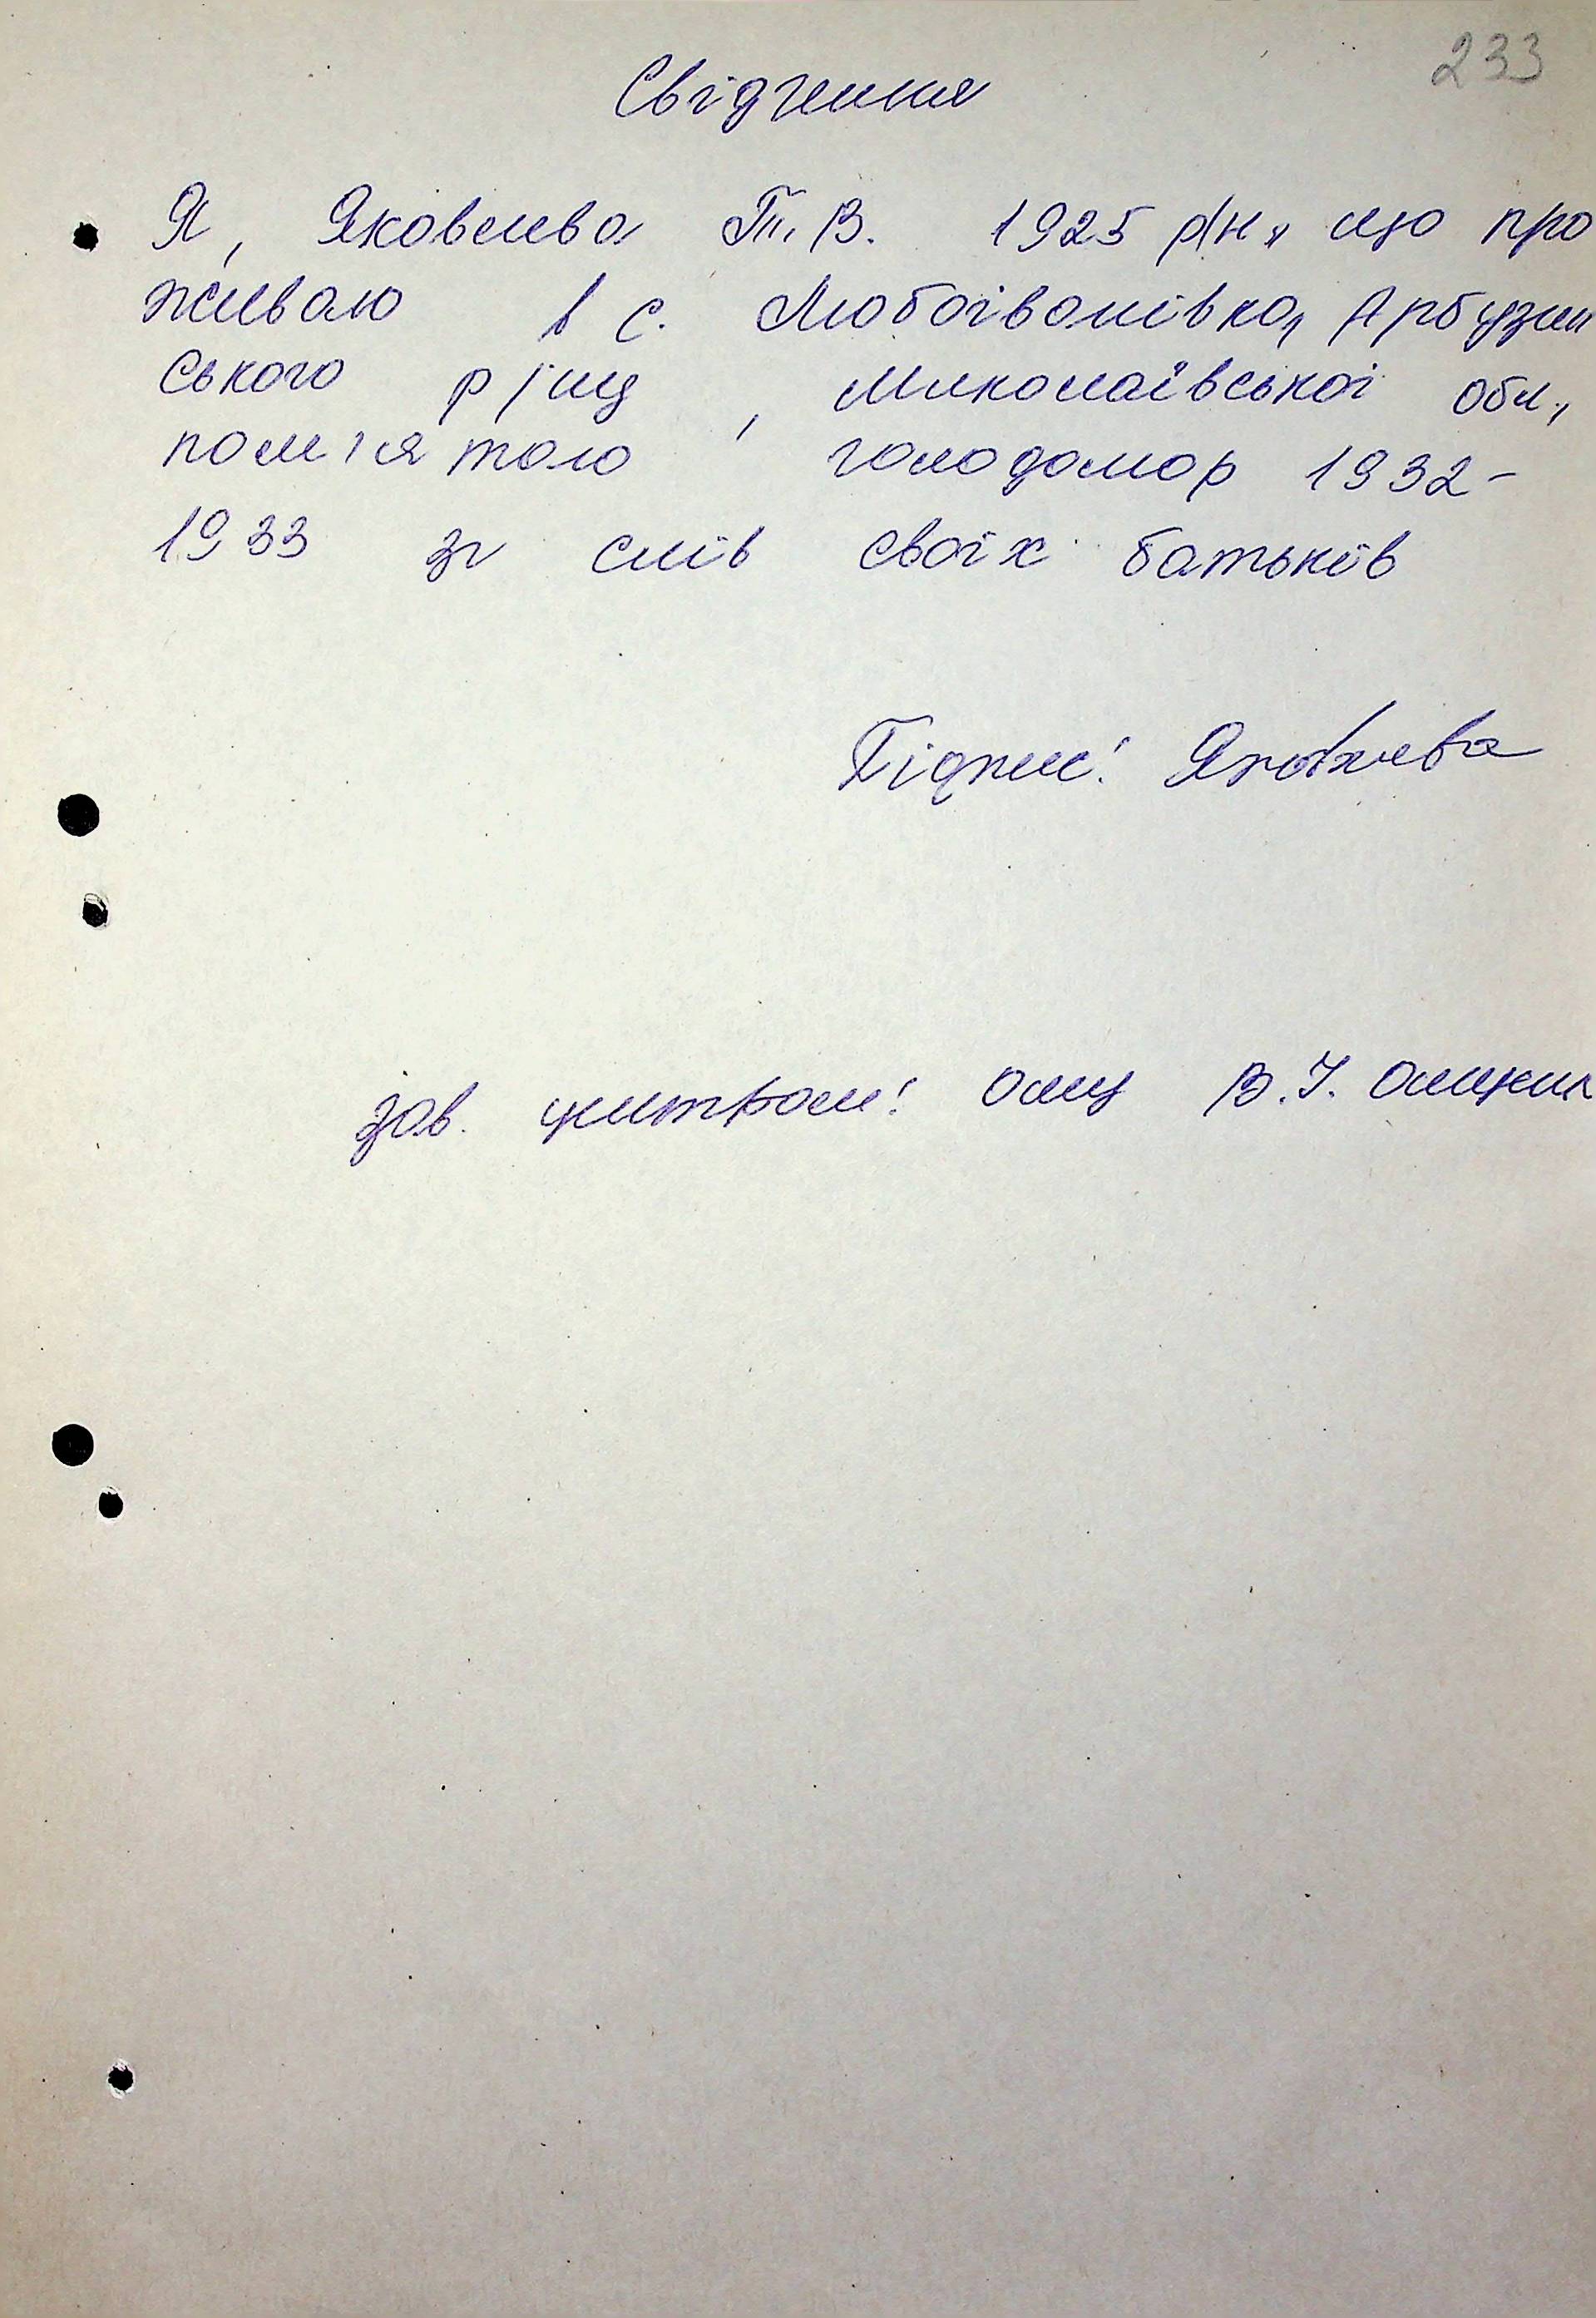 233
Свідчення
Я, Яковлева Т. В. 1925 р/н, що про
живаю в с. Любоіванівка, Арбузин
ського р/ну, Миколаївської обл.,
пам'ятаю голодомор 1932-
1933 зі слів своїх батьків
Підпис: Яковлева
зав. центром: В.І.